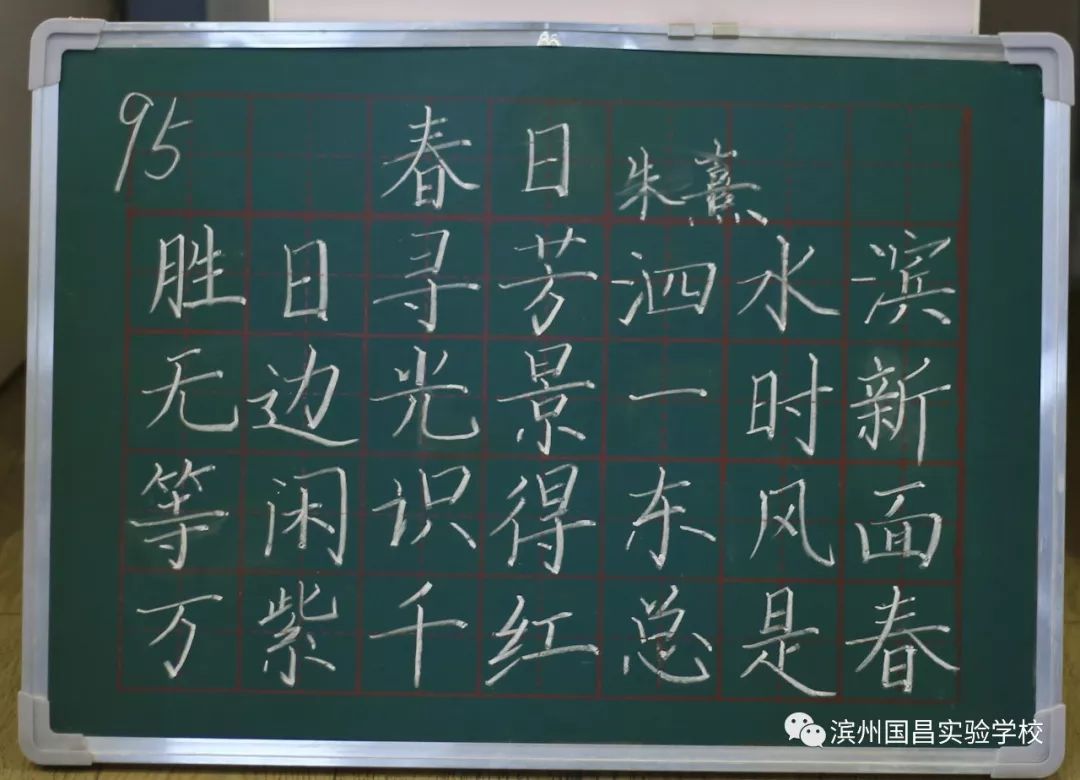 95 春日 朱熹
胜日寻芳泗水滨
无边光景一时新
等闲识得东风面
万紫千红总是春
滨州国昌实验学校